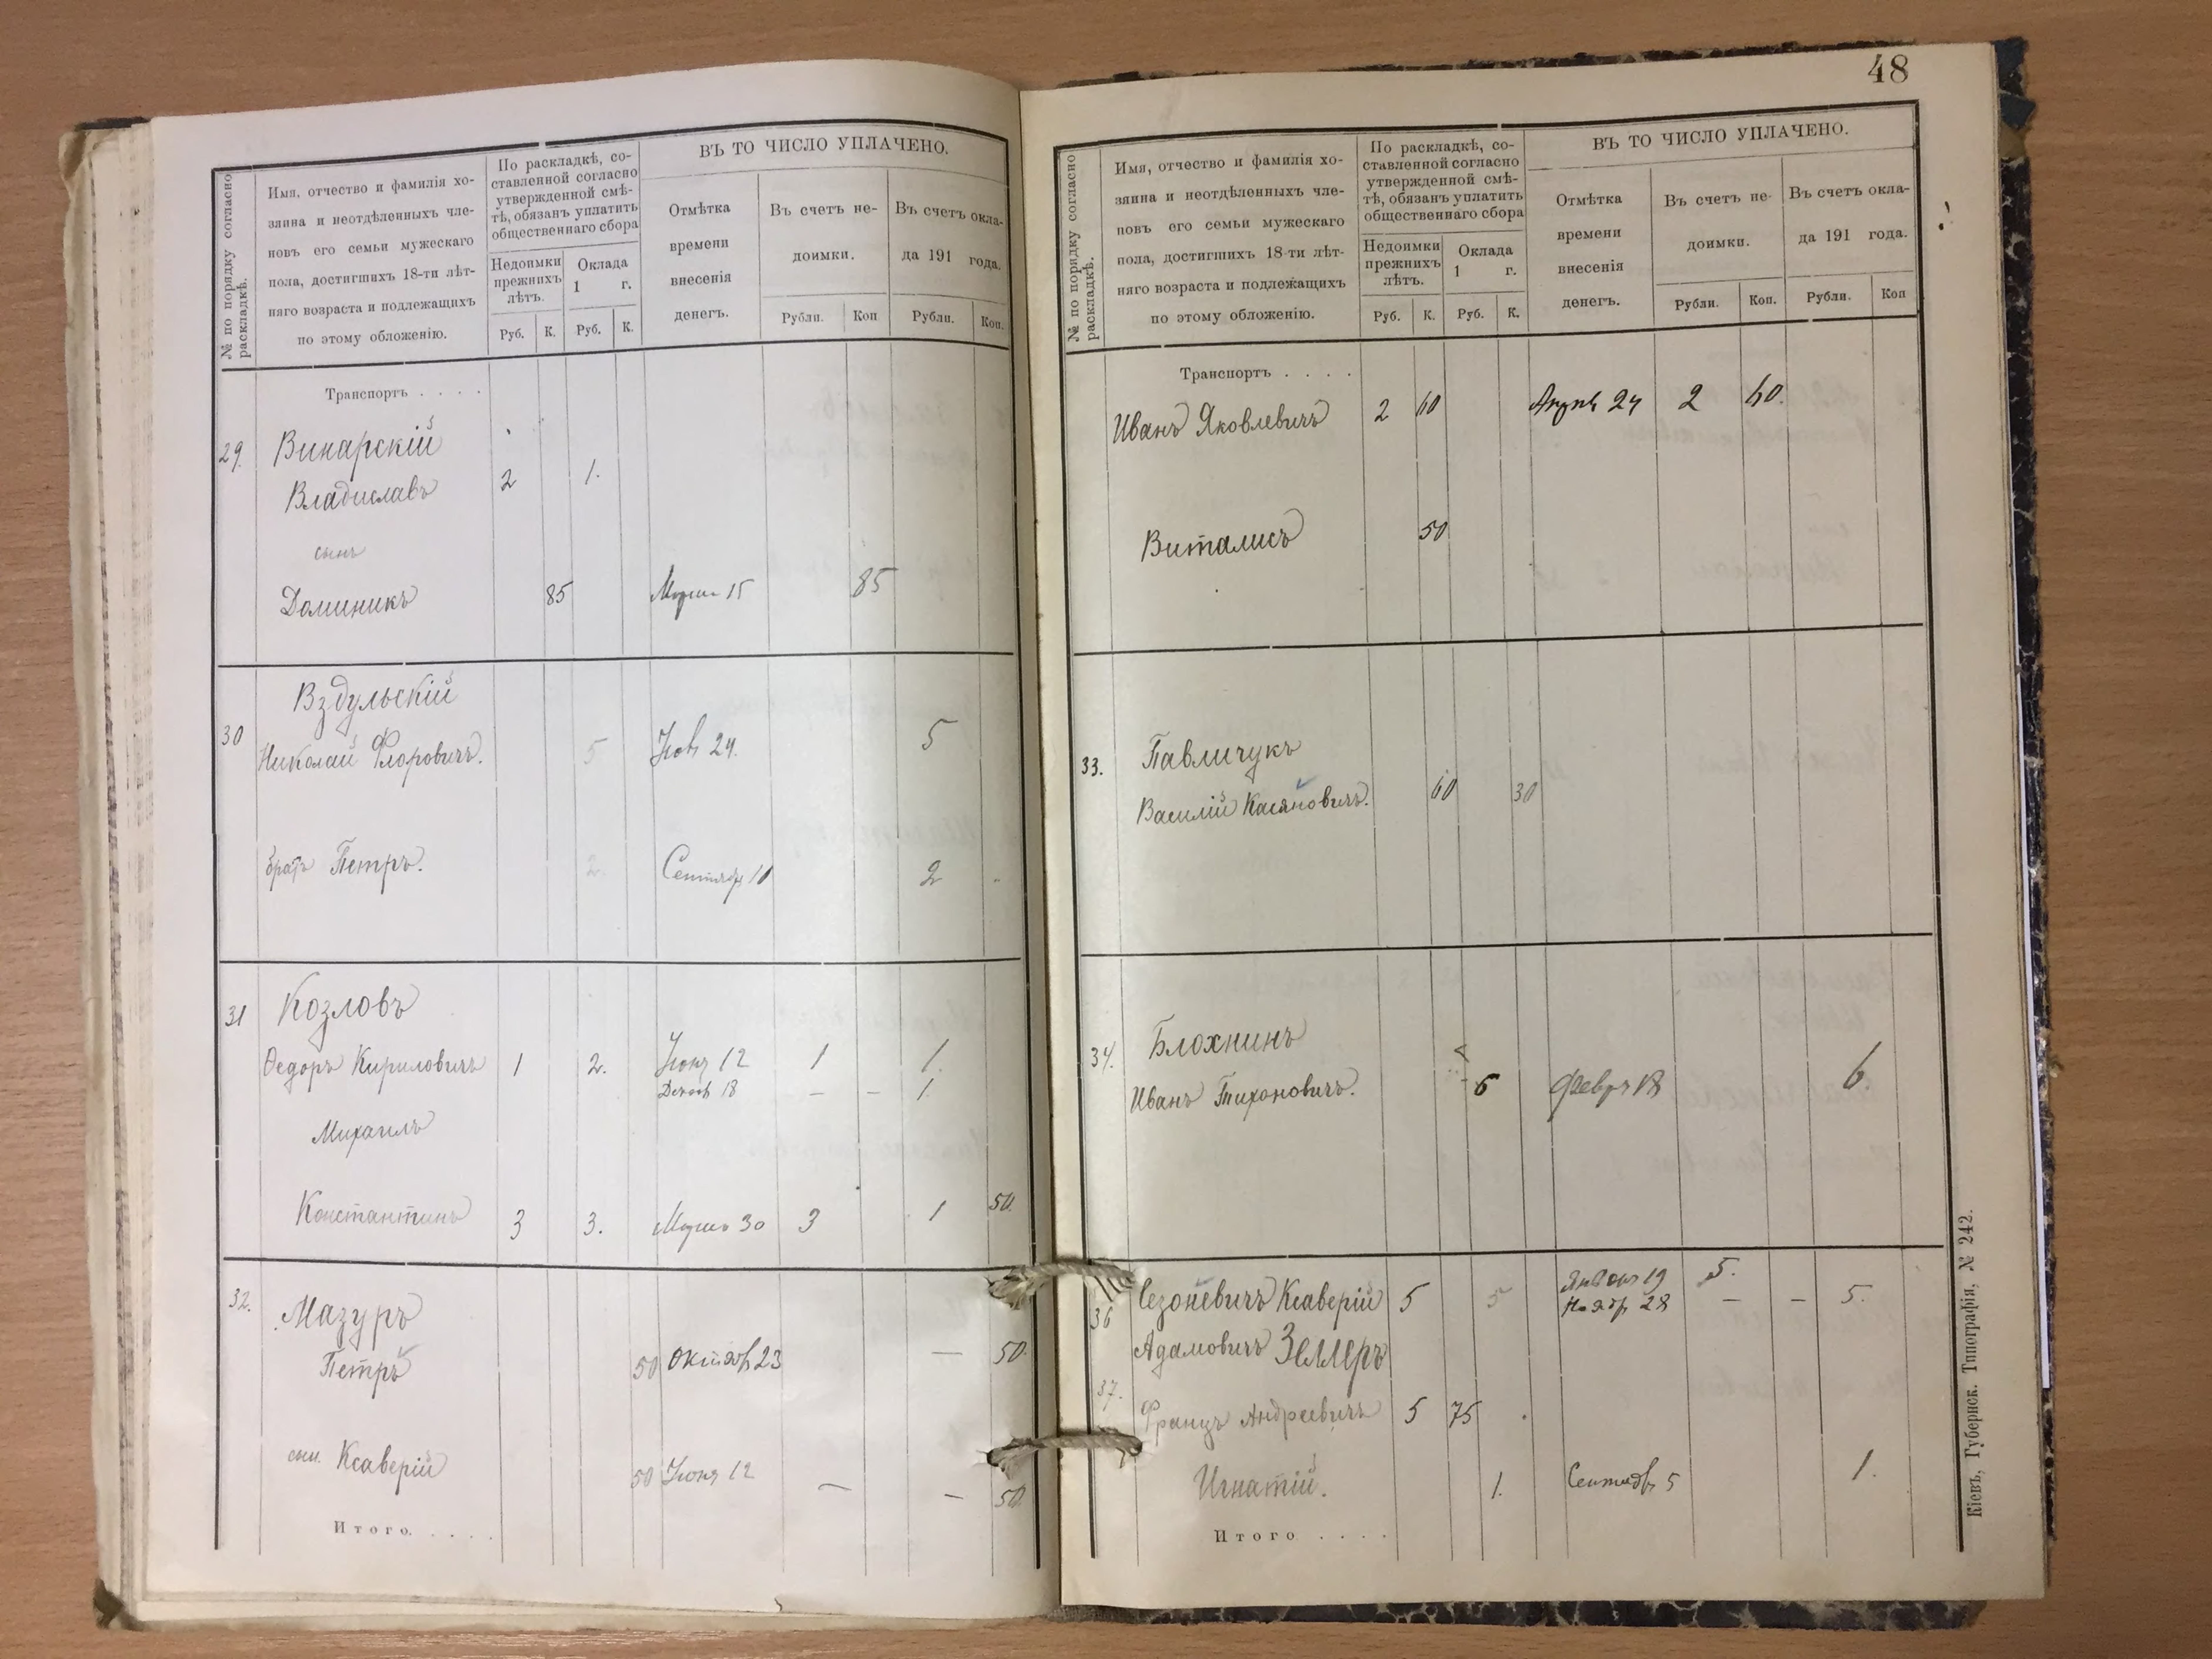 № по порядку согласно раскладкѣ.
Имя, отчество и фамилія хо-
зяина и неотдѣленныхъ чле-
новъ его семьи мужескаго
пола, достигшихъ 18-ти лѣт-
няго возраста и подлежащихъ
по этому обложенію.
По раскладкѣ, со-
ставленной согласно
утвержденной смѣ-
тѣ, обязанъ уплатить
общественнаго сбора
Недоимки
прежнихъ
лѣтъ.
Оклада
1 г.
Руб. К. Руб. К.
ВЪ ТО ЧИСЛО УПЛАЧЕНО.
Отмѣтка
времени
внесенія
денегъ.
Въ счетъ не-
доимки.
Въ счетъ окла-
да 191 года.
Рубли. Коп Рубли. Коп.
Транспортъ . . . .
29. Винарскій
Владиславъ 2 1.
сынъ
Доминикъ 85 Марта 15 85
30 Вздульскій
Николай Флоровичъ. 5 Нояб 24. 5
братъ Петръ. 2. Сентября 10 2
31 Козловъ
Федоръ Кириловичъ 1 2. Іюня 12 1 1.
Декаб 18 — — 1.
Михаилъ
Константинъ 3 3. Марта 30 3 1 50.
32. Мазуръ
Петръ 50 Октяб 23 — 50.
сын. Ксаверій 50 Іюня 12 — — 50
Итого. . . . .
48
№ по порядку согласно раскладкѣ.
Имя, отчество и фамилія хо-
зяина и неотдѣленныхъ чле-
новъ его семьи мужескаго
пола, достигшихъ 18-ти лѣт-
няго возраста и подлежащихъ
по этому обложенію.
По раскладкѣ, со-
ставленной согласно
утвержденной смѣ-
тѣ, обязанъ уплатить
общественнаго сбора
Недоимки
прежнихъ
лѣтъ.
Оклада
1 г.
Руб. К. Руб. К.
ВЪ ТО ЧИСЛО УПЛАЧЕНО.
Отмѣтка
времени
внесенія
денегъ.
Въ счетъ не-
доимки.
Въ счетъ окла-
да 191 года.
Рубли. Коп. Рубли. Коп
Транспортъ . . . .
Иванъ Яковлевичъ 2 60 24 2 60.
Виталисъ 50
33. Павличукъ
Василій Касяновичъ. 60 30
34. Блохнинъ
Иванъ Тихоновичъ. 6 Февр 18 6.
36 Сезоневичъ Ксаверій 5 5 Января 19 5.
Нояр 28 — — 5.
Адамовичъ Зеллеръ
37. Францъ Андреевичъ 5 75
Игнатій. 1. Сентяб 5 1.
Итого . . . .
Кіевъ, Губернск. Типографія, № 242.